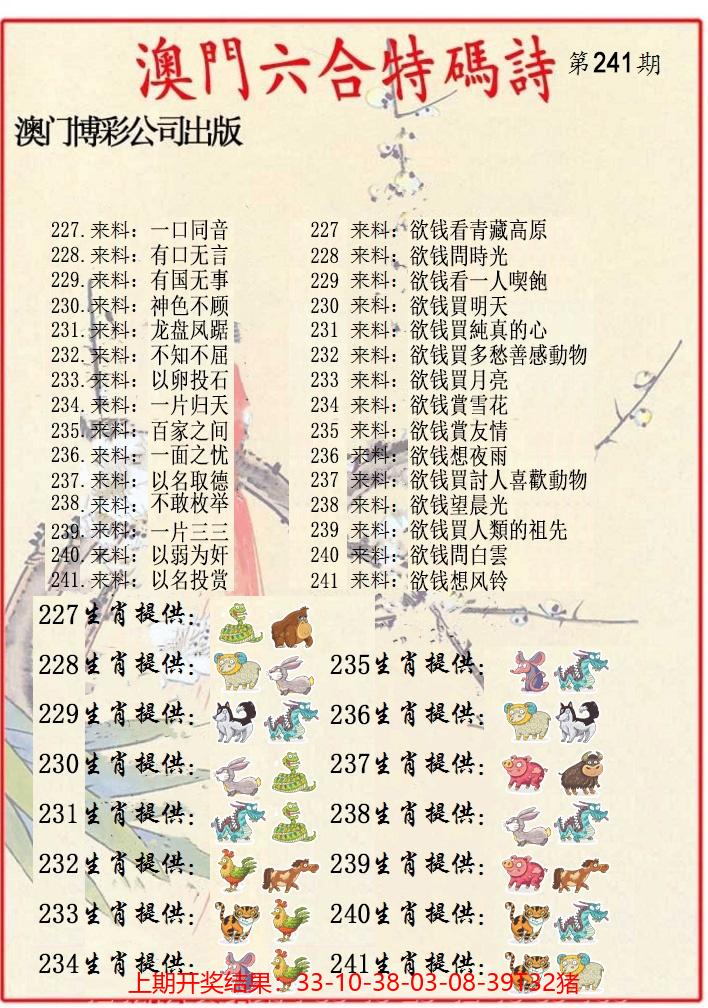 澳門六合特碼詩 第241期
澳门博彩公司出版
227.来料：一口同音
228.来料：有口无言
229.来料：有国无事
230.来料：神色不顾
231.来料：龙盘凤踞
232.来料：不知不屈
233.来料：以卵投石
234.来料：一片归天
235.来料：百家之间
236.来料：一面之忧
237.来料：以名取德
238.来料：不敢枚举
239.来料：一片三三
240.来料：以弱为奸
241.来料：以名投赏
227 来料：欲钱看青藏高原
228 来料：欲钱問時光
229 来料：欲钱看一人喫飽
230 来料：欲钱買明天
231 来料：欲钱買純真的心
232 来料：欲钱買多愁善感動物
233 来料：欲钱買月亮
234 来料：欲钱賞雪花
235 来料：欲钱賞友情
236 来料：欲钱想夜雨
237 来料：欲钱買討人喜歡動物
238 来料：欲钱望晨光
239 来料：欲钱買人類的祖先
240 来料：欲钱問白雲
241 来料：欲钱想风铃
227生肖提供：
228生肖提供：
229生肖提供：
230生肖提供：
231生肖提供：
232生肖提供：
233生肖提供：
234生肖提供：
235生肖提供：
236生肖提供：
237生肖提供：
238生肖提供：
239生肖提供：
240生肖提供：
241生肖提供：
上期开奖结果：33-10-38-03-08-39T32猪